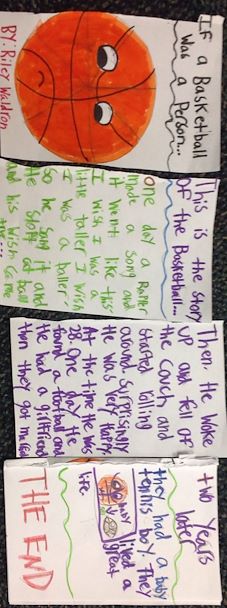 IF a Basketball
Was a Person...
BY: Riley Waldron
This is the story
of the Basketball...
One day a Raper
made a song and
it went like this
I wish I was a
little taller I wish
I was a baller
so he song it and
he slept at ball
and his wish came
true...
Then, He woke
up and fell of
the couch and
started rolling
around. Surprisingly
He was very happy.
At the time he was
28. One day He
found a football and
He had a girlfriend
then they got married
two years
later
they had a baby
tennis boy. They
lived a
great
life.
THE END